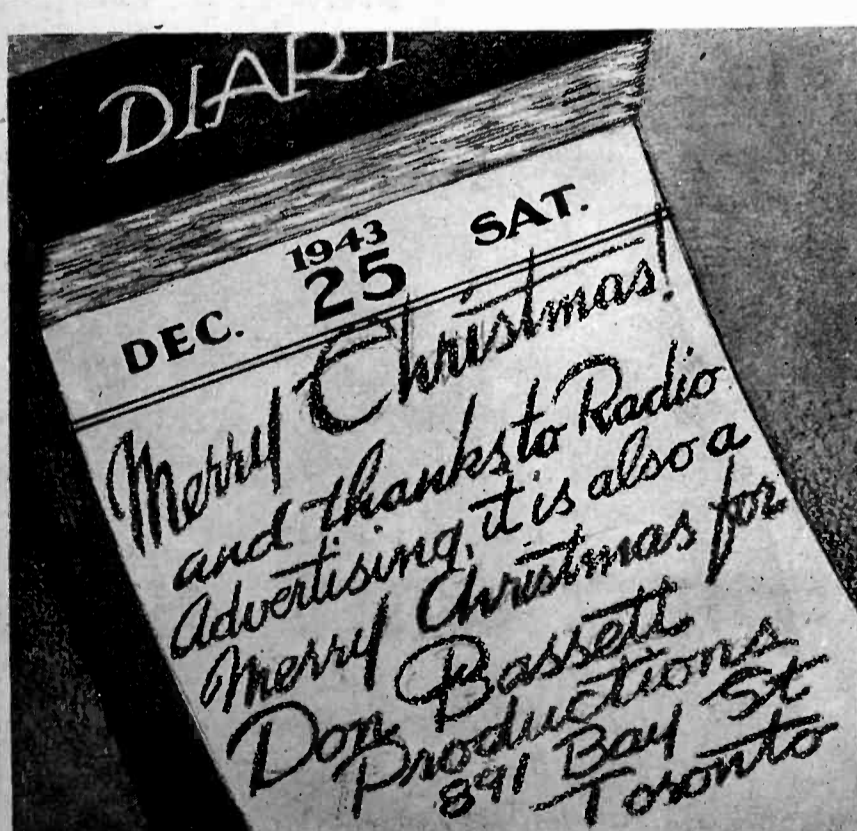 DIARY
DEC. 1943 25 SAT.
Merry Christmas!
and thanks to Radio
Advertising, it is also a
Merry Christmas for
Don Bassett
Productions
891 Bay St
Toronto